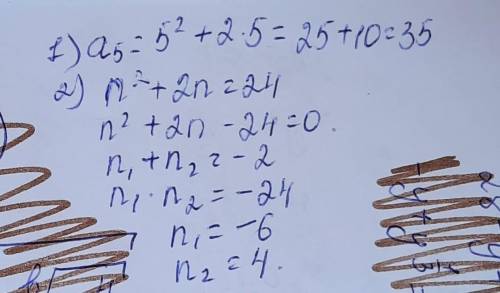 1) a₅ = 5² + 2·5 = 25 + 10 = 35
2) n² + 2n = 24
n² + 2n - 24 = 0.
n₁ + n₂ = -2
n₁ · n₂ = -24
n₁ = -6
n₂ = 4.